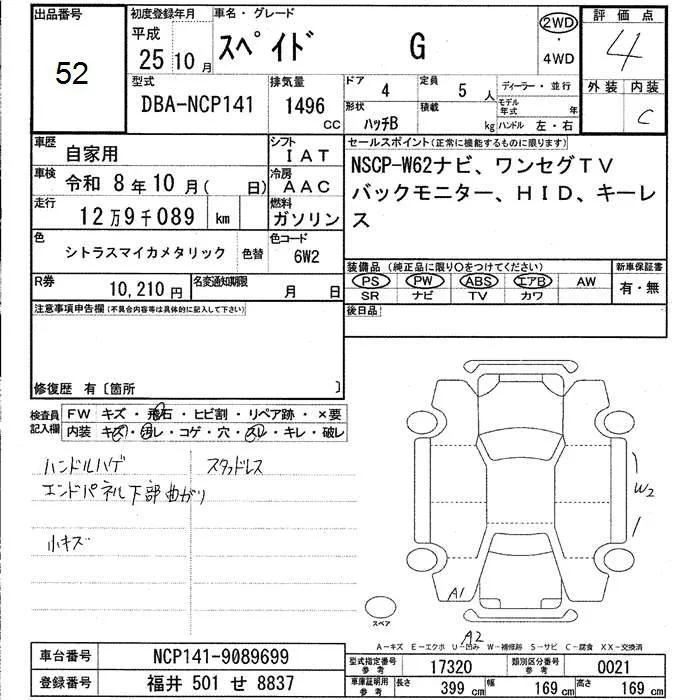 出品番号 52
初度登録年月 平成 25 10 月
車名・グレード スペイド G
2WD ・ 4WD
評価点 4
外装 内装 C
型式 DBA-NCP141
排気量 1496 CC
ドア 4
定員 5 人
形状 ハッチB
積載 kg
ディーラー・並行
モデル年式 年
ハンドル 左・右
車歴 自家用
シフト IAT
車検 令和 8年10月( 日)
冷房 AAC
走行 12万9千089 km
燃料 ガソリン
色 シトラスマイカメタリック 色替
色コード 6W2
R券 10,210円
名変通知期限 月 日
セールスポイント(正常に機能するものに限ります)
NSCP-W62ナビ、ワンセグTV
バックモニター、HID、キーレ
ス
装備品(純正品に限り○をつけてください)
PS PW ABS エアB AW
SR ナビ TV カワ
新車保証書 有・無
後日品
注意事項申告欄(不具合内容等は具体的に記入して下さい)
修復歴 有〔箇所 〕
検査員記入欄
FW キズ・飛石・ヒビ割・リペア跡・×要
内装 キズ・汚レ・コゲ・穴・スレ・キレ・破レ
ハンドルハゲ スタッドレス
エンドパネル下部曲がり
小キズ
W2
A1
スペア
A2
A-キズ E-エクボ U-凹み W-補修跡 S-サビ C-腐食 XX-交換済
車台番号 NCP141-9089699
登録番号 福井 501 せ 8837
型式指定番号 参考 17320
類別区分番号 参考 0021
車庫証明用 参考 長さ 399 cm 幅 169 cm 高さ 169 cm